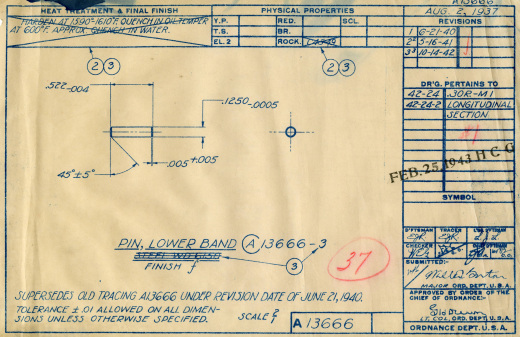 HEAT TREATMENT & FINAL FINISH
HARDEN AT 1590°-1610°F. QUENCH IN OIL. TEMPER
AT 600°F. APPROX. QUENCH IN WATER.
PHYSICAL PROPERTIES
Y.P. RED. SCL.
T.S. BR.
EL.2 ROCK.
A13666
AUG. 2, 1937
REVISIONS
1 6-21-40
2 5-16-41
3 10-14-42
2 3
2 3
.522-.004
.1250-.0005
.005+.005
45°±5°
DR'G. PERTAINS TO
42-24 .30R-M1
42-24-2 LONGITUDINAL
SECTION
#1
FEB. 25, 1943 H C G
SYMBOL
PIN, LOWER BAND A 13666-3
FINISH f
3
37
D'FTSMAN TRACER
CHECKER
SUBMITTED:-
MAJOR ORD. DEPT. U.S.A.
APPROVED BY ORDER OF THE
CHIEF OF ORDNANCE:-
LT. COL. ORD. DEPT. U.S.A.
ORDNANCE DEPT. U.S.A.
SUPERSEDES OLD TRACING A13666 UNDER REVISION DATE OF JUNE 21, 1940.
TOLERANCE ±.01 ALLOWED ON ALL DIMEN-
SIONS UNLESS OTHERWISE SPECIFIED.
SCALE 2/1
A 13666